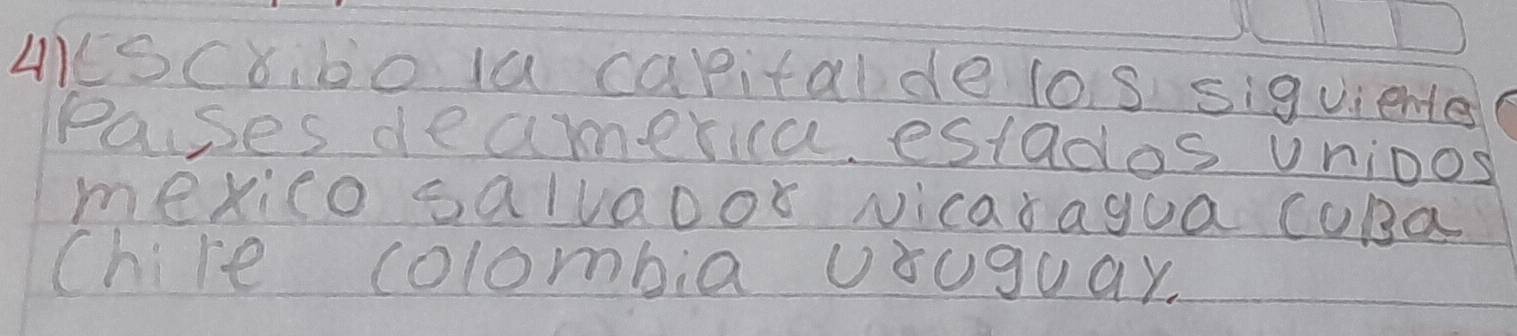 4) Escribo la capital de los siguiente
Paises de america. estados uniDos
mexico salvaDor Nicaragua CuBa
Chile colombia uruguay.